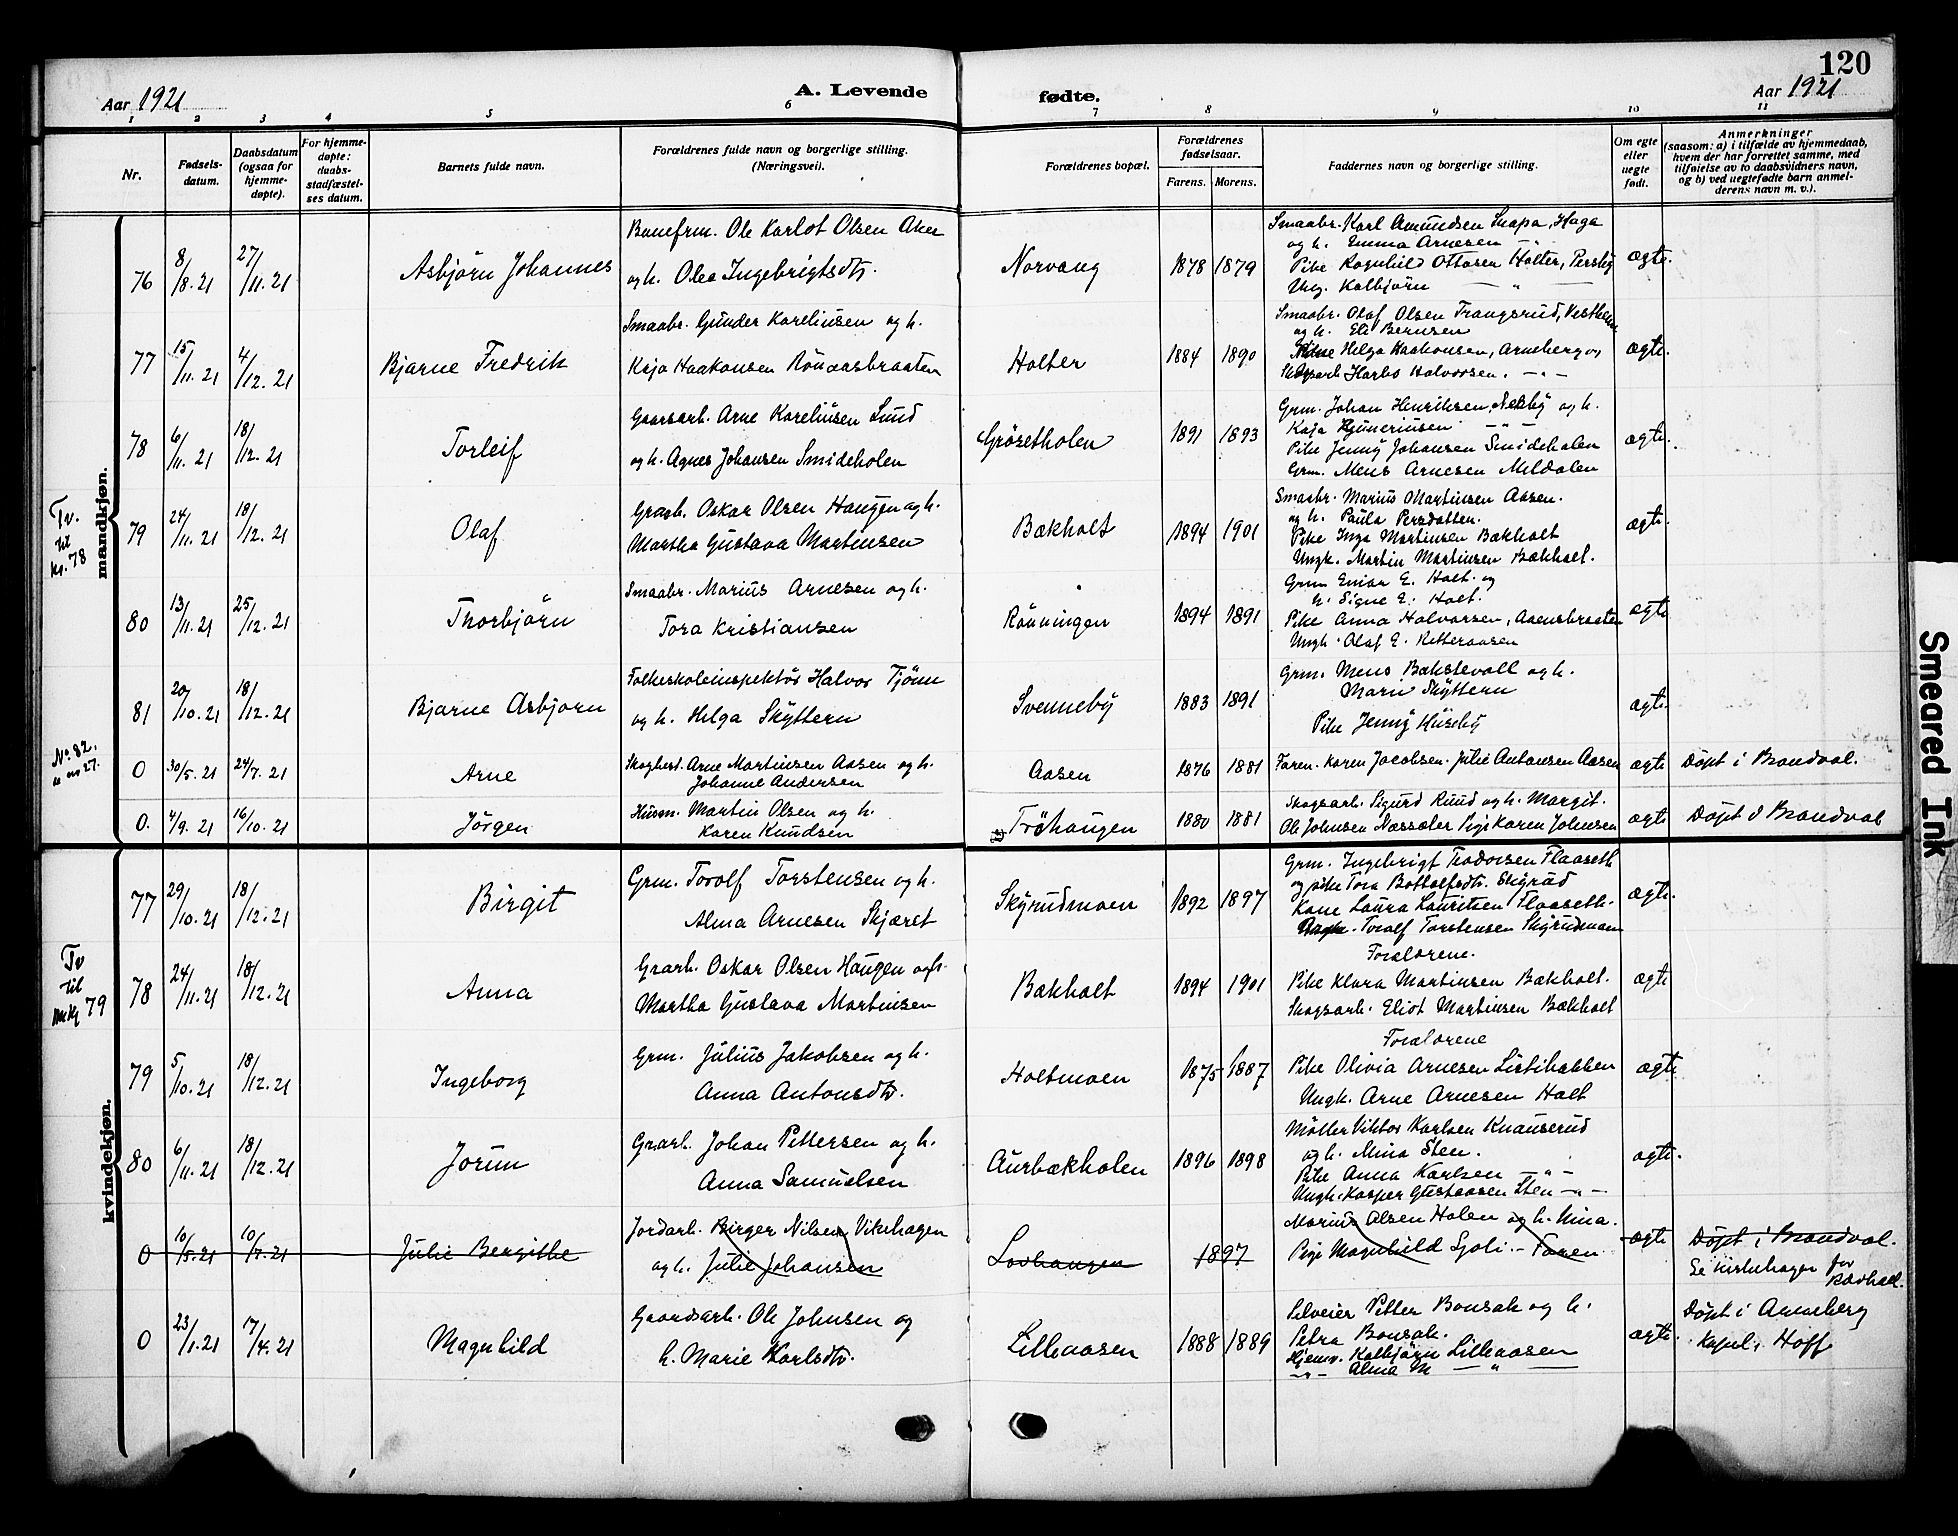 120
Aar 1921
A. Levende
fødte.
Aar 1921
1 2 3 4 5 6 7 8 9 10 11
Nr.
Fødsels-
datum.
Daabsdatum
(ogsaa for
hjemme-
døpte).
For hjemme-
døpte:
daabs-
stadfæstel-
ses datum.
Barnets fulde navn.
Forældrenes fulde navn og borgerlige stilling.
(Næringsvei).
Forældrenes bopæl.
Forældrenes
fødselsaar.
Farens. Morens.
Faddernes navn og borgerlige stilling.
Om egte
eller
uegte
født.
Anmerkninger
(saasom: a) i tilfælde av hjemmedaab,
hvem der har forrettet samme, med
tilføielse av to daabsvidners navn,
og b) ved uegtefødte barn anmel-
derens navn m. v.).
mandkjøn.
76 8/8.21 27/11.21 Asbjörn Johannes
Banefrm. Ole Karlot Olsen Aker
og h. Olea Ingebrigtsdtr.
Norvang 1878 1879
Smaabr. Karl Amundsen Snapa, Haga
og h. Emma Arnesen — " —
Pike Ragnhild Ottosen Holter, Persby
Ung. Kolbjörn — " —
ægte.
77 15/11.21 4/12.21 Bjarne Fredrik
Smaabr. Gunder Kareliusen og h.
Kaja Haakonsen Rönaasbraaten
Holter 1884 1890
Smaabr. Olaf Olsen Frangsrud, Vestheim
og h. Eli Berntsen
Pike Helga Haakonsen, Arneberg og
Harbo Halvorsen. — " —
ægte.
78 6/11.21 18/12.21 Torleif
Gaardsarb. Arne Kareliusen Lund
og h. Agnes Johansen Smideholen
Gröset­holen 1891 1893
Grm. Johan Henriksen, Nekby og h.
Kaja — " —
Pike Jenny Johansen Smideholen
Grm. Mens Arnesen Meldalen
ægte.
Tv.
til
kv. 78
79 24/11.21 18/12.21 Olaf
Grarb. Oskar Olsen Haugen og h.
Martha Gustava Martinsen
Bækholt 1894 1901
Smaabr. Marius Martinsen Aasen.
og h. Paula Persdatter.
Pike Inga Martinsen Bækholt
Ungk. Martin Martinsen Bækholt.
ægte.
80 13/11.21 25/12.21 Thorbjörn
Smaabr. Marius Arnesen og h.
Tora Kristiansen
Rönningen 1894 1891
Grm Einar E. Holt. og
h. Signe E. Holt.
Pike Anna Halvorsen, Aasensbraaten
Ungk. Olaf E. Ketteraasen
ægte
81 20/10.21 18/12.21 Bjarne Asbjorn
Folkeskoleinspektör Halvor Tjönn
og h. Helga Skyttern
Svenneby 1883 1891
Grm. Mens Bækstevold og h.
Marie Skyttern
Pike Jenny Huseby
ægte.
No. 82.
0 30/5.21 24/7.21 Arne
Skogbest. Arne Martinsen Aasen og h.
Johanne Andersen
Aasen 1876 1881
Faren. Karen Jacobsen. Julie Antonsen Aasen
ægte Döpt i Brandval.
0. 4/9.21 16/10.21 Jörgen
Husm. Martin Olsen og h.
Karen Knudsen
Tröhaugen 1880 1881
Skogsarb. Sigurd Ruud og h. Margit.
Ole Johnsen Næssæter Pige Karen Johnsen
ægte Döpt i Brandval
kvindekjøn.
77 29/10.21 18/12.21 Birgit
Grm. Torolf Torstensen og h.
Alma Arnesen Skjæret
Skyrudmoen 1892 1897
Grm. Ingebrigt Teodorsen Flaaseth
og pike Tora Bottolfsdtr. Skyrud
Kone Laura Lauritsen Flaaseth.
Torolf Torstensen Skyrudmoen
ægte.
Tv
til
mkj 79
78 24/11.21 18/12.21 Anna
Grarb. Oskar Olsen Haugen og h.
Martha Gustava Martinsen
Bækholt 1894 1901
Forældrene.
Pike Klara Martinsen Bækholt.
Skogsarb. Eliot Martinsen Bækholt
ægte
79 5/10.21 18/12.21 Ingeborg
Grm. Julius Jakobsen og h.
Anna Antonsdtr.
Holtmoen 1875 1887
Forældrene
Pike Olivia Arnesen Listibakken
Ungk. Arne Arnesen Holt
ægte
80 6/11.21 18/12.21 Jorun
Grarb. Johan Pettersen og h.
Anna Samuelsen
Aurbækholen 1896 1898
Möller Viktor Karlsen Knauserud
og h. Mina Sten.
Pike Anna Karlsen — " —
Ungk. Kasper Gustavsen Sten — " —
ægte.
0 10/5.21 10/7.21 Julie Bergithe
Jordarb. Birger Nilsen Vikehagen
og h. Julie Johansen
Lovhaugen 1897
Marius Olsen Holen og h. Nina.
Pige Magnhild Sjoli. – Faren
ægte Döpt i Brandval.
Se kirkebogen for
0 23/1.21 17/4.21 Magnhild
Gaardsarb. Ole Johnsen og
h. Marie Karlsdtr.
Lilleaasen 1888 1889
Petter Bonsak og h.
Petra Bonsak.
Hjemv. Kolbjörn Lilleaasen
— " — Alma M — " —
ægte.
Döpt i Arneberg
kapel, Hoff
Smeared Ink